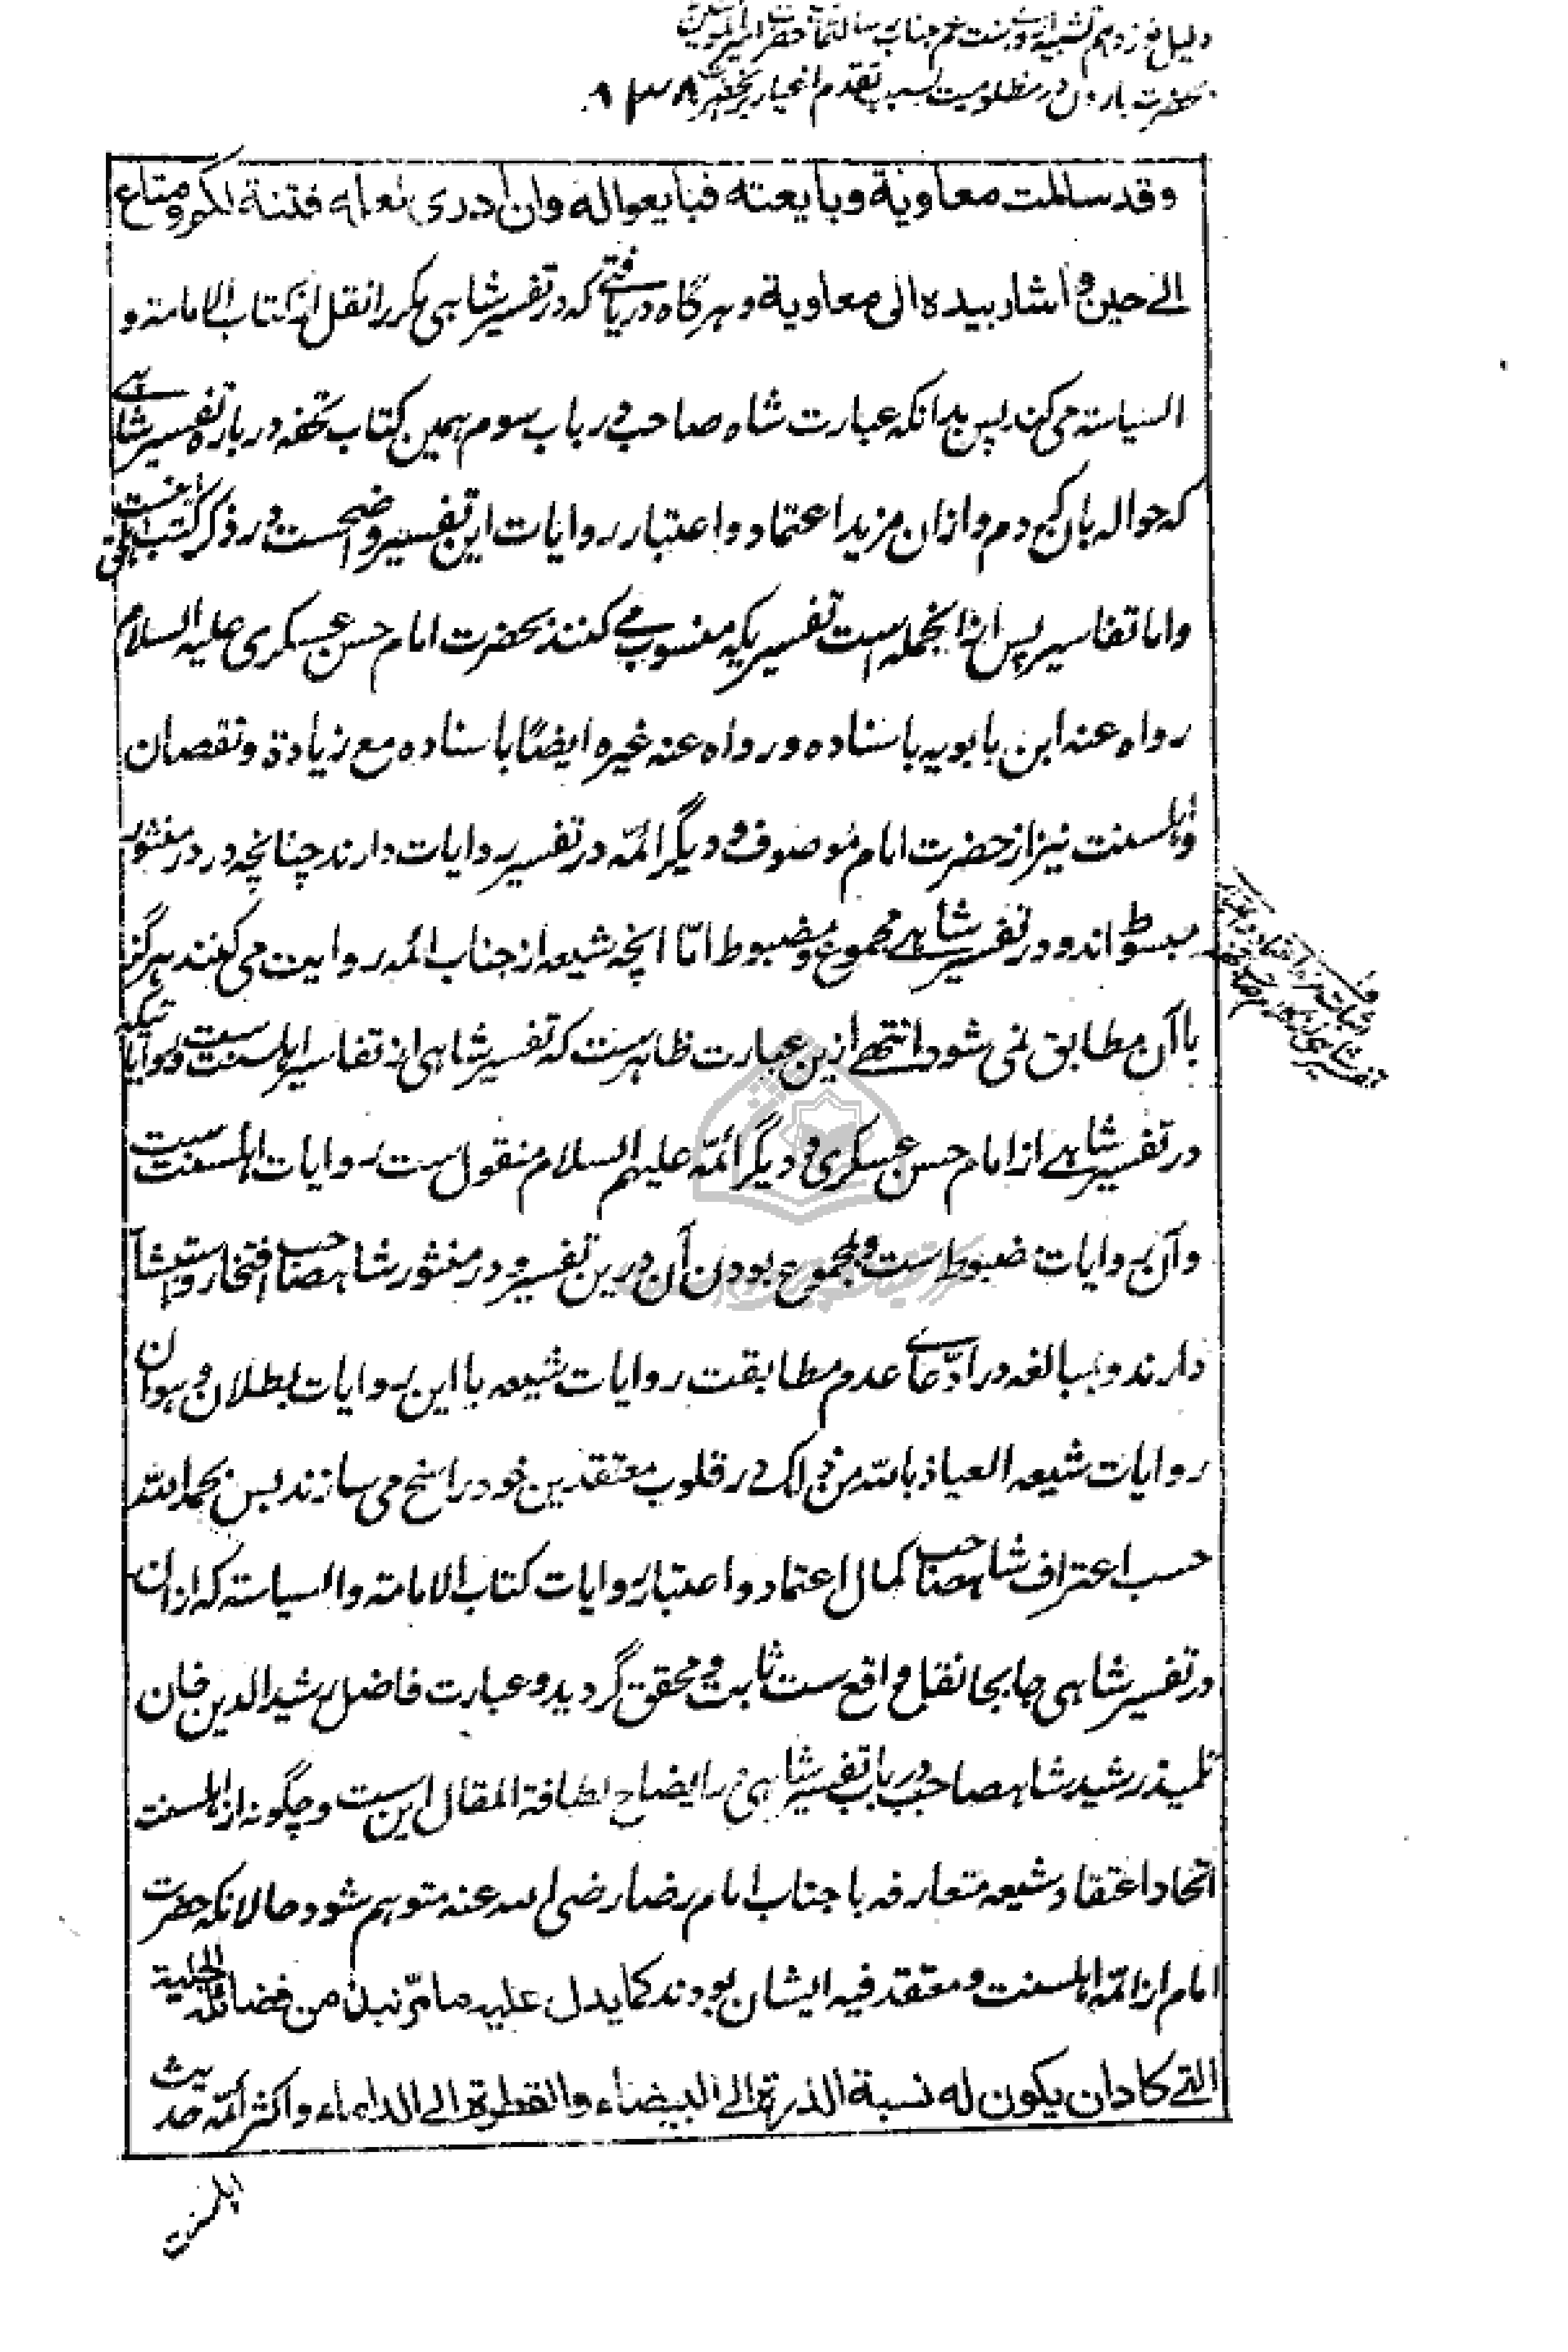 دلیل نوزدهم تشبیه جناب رسالتمآب حضرت امیر المومنین
بحضرت هارون در مظلومیت بسبب تقدم اغیار بر آنحضرت ۹۳۸
وقد سالمت معاوية وبايعته فبايعوا له وان ادرى لعله فتنة لكم ومتاع
الى حين واشار بيده الى معاوية وهرگاه دریافتی که در تفسیر شاهی مکرر انقل از کتاب الامامة و
السیاسة می کند پس بدانکه عبارت شاه صاحب در باب سوم همین کتاب تحفه درباره تفسیر شاهی
که حواله بآن کردم و ازان مزید اعتماد و اعتبار روایات این تفسیر واضحست در ذکر کتب
واما تفاسیر پس ازانجمله است تفسیریکه منسوب می کنند بحضرت امام حسن عسکری علیه السلام
رواه عنه ابن بابویه باسناده ورواه عنه غیره ایضًا باسناده مع زیادة ونقصان
واهلسنت نیز از حضرت امام موصوف و دیگر ائمّه در تفسیر روایات دارند چنانچه در در منثور
مبسوط اند و در تفسیر شاهی مجموع ومضبوط امّا انچه شیعه از جناب ائمه روایت می کنند هرگز
با آن مطابق نمی شود انتهی ازین عبارت ظاهرست که تفسیر شاهی از تفاسیر اهلسنت ست وروایاتیکه
در تفسیر شاهی از امام حسن عسکری و دیگر ائمّه علیهم السلام منقول ست روایات اهلسنت ست
وآن روایات مضبوط است وبمجموع بودن آن درین تفسیر و در منثور شاهصاحب افتخار و
دارند و بمبالغه در ادّعای عدم مطابقت روایات شیعه با این روایات بطلان و هوان
روایات شیعه العیاذ بالله من ذلک در قلوب معتقدین خود راسخ می سازند پس بحمد الله
حسب اعتراف شاهصاحب کمال اعتماد و اعتبار روایات کتاب الامامة والسیاسة که ازان
در تفسیر شاهی جابجا نقلها واقع ست ثابت و محقق گردید و عبارت فاضل رشید الدین خان
تلمیذ رشید شاهصاحب در باب تفسیر شاهی در ایضاح لطافة المقال این ست و چگونه از اهلسنت
اتحاد اعتقاد شیعه متعارفه با جناب امام رضا رضی الله عنه متوهم شود حالانکه حضرت
امام از ائمّه اهلسنت ومعتقد فیه ایشان بودند کما یدل علیه ما مرّ نبذ من فضائله الجلیة
التي كاد ان يكون له نسبة الذرة الى البيضاء والقطرة الى الداماء واکثر ائمّه حدیث